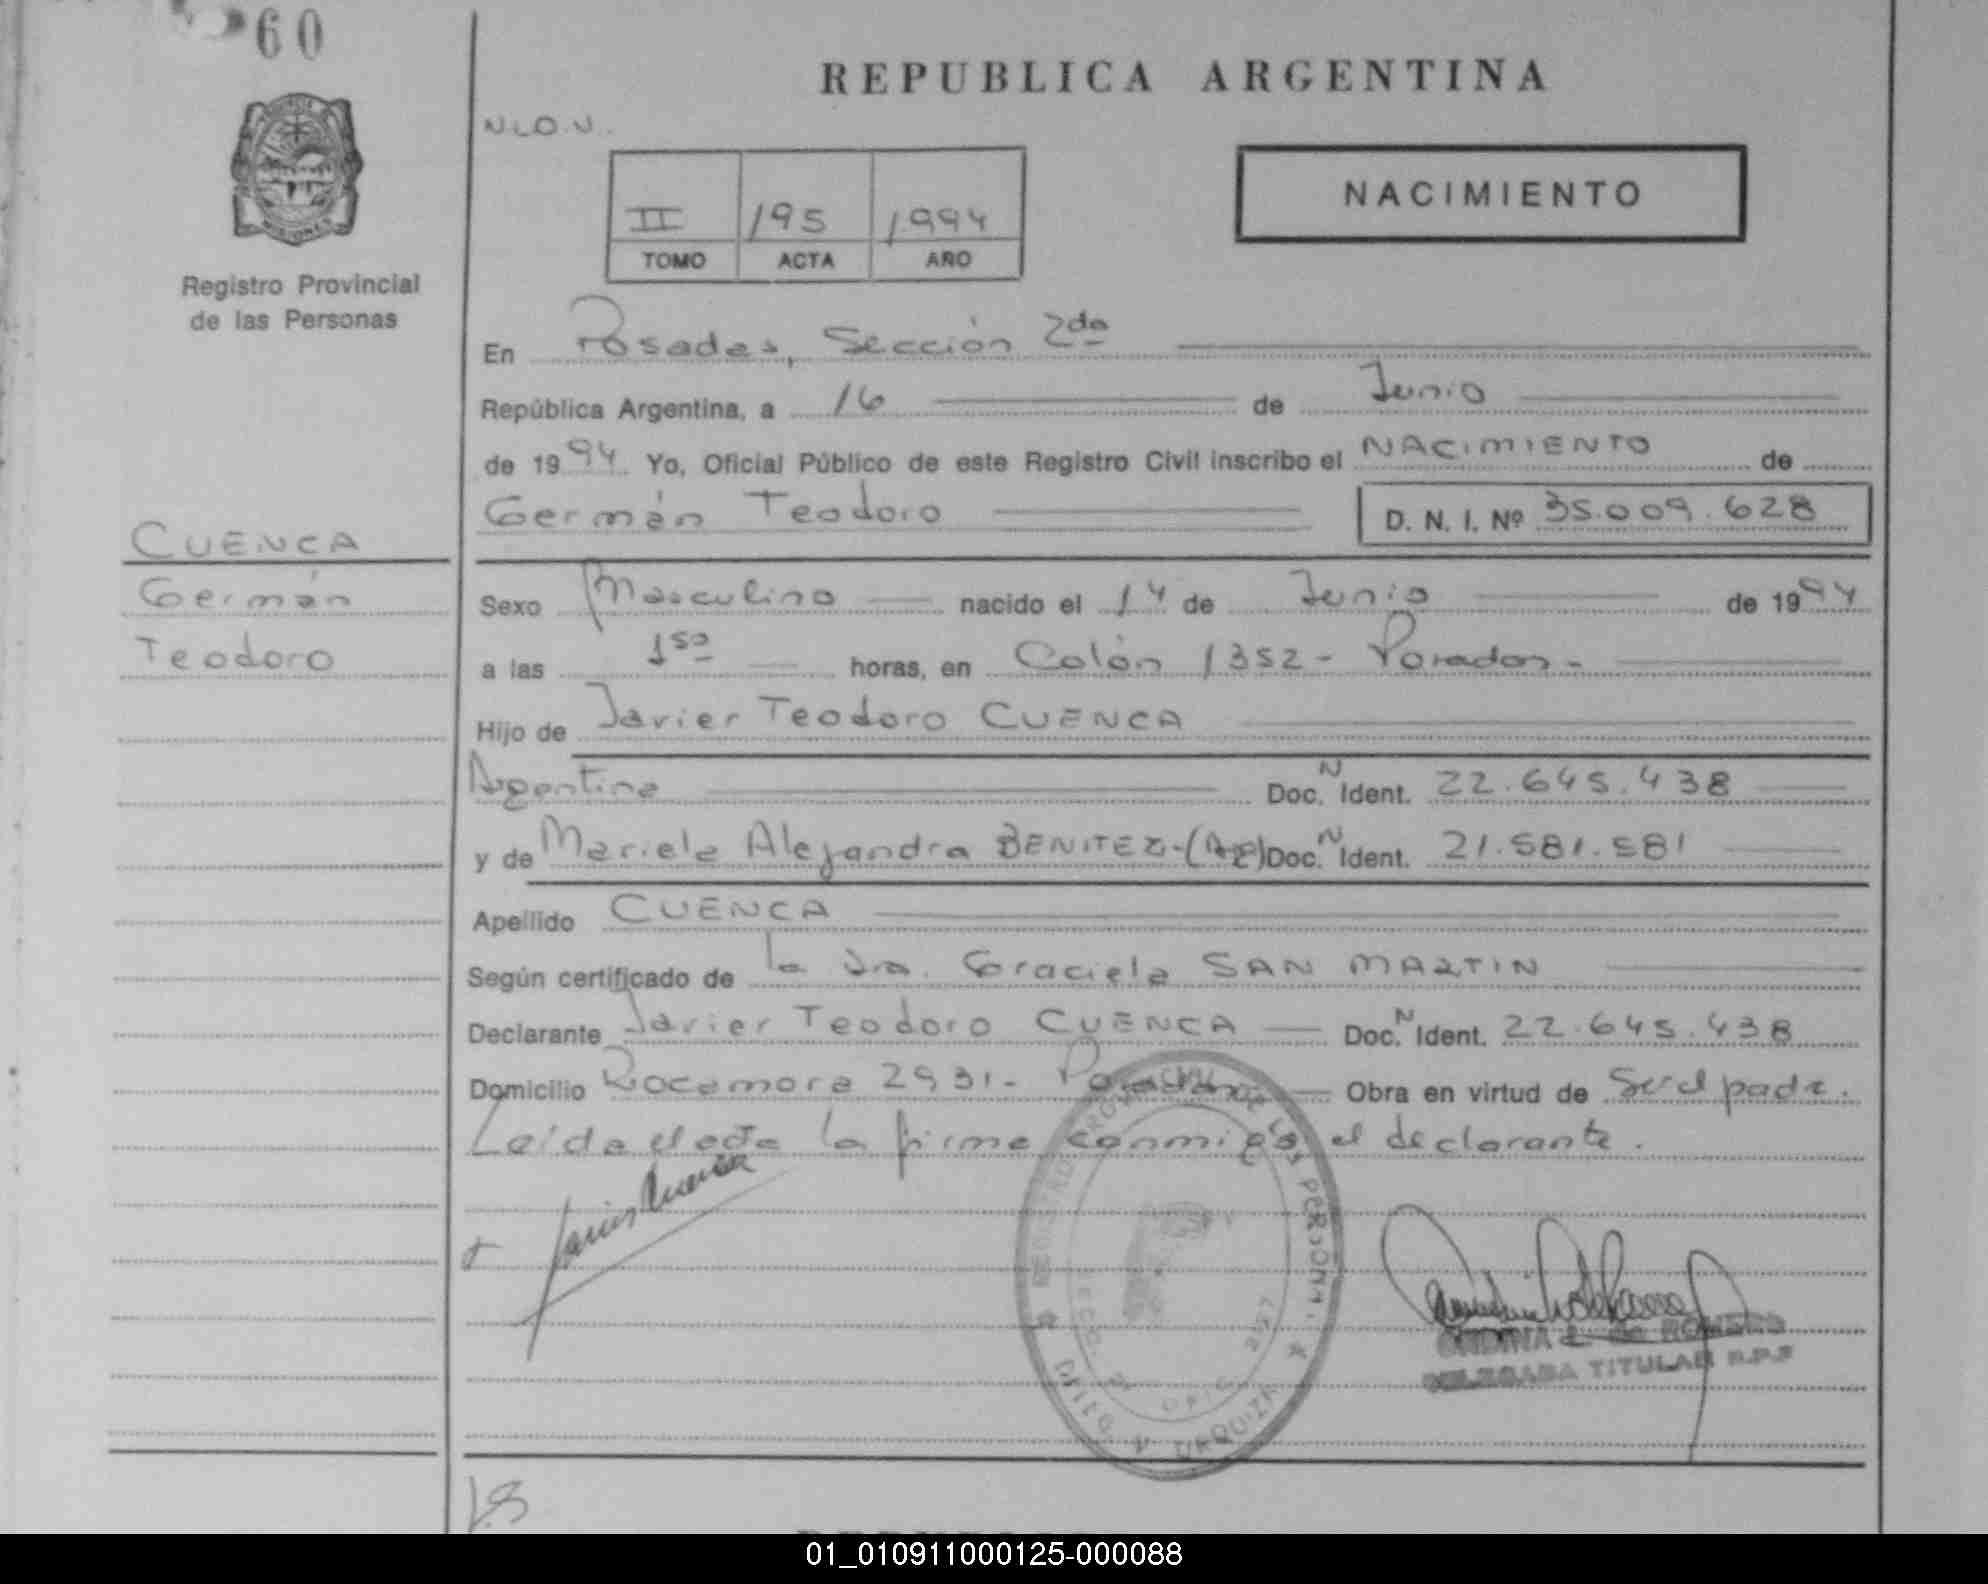 60
REPUBLICA ARGENTINA
N.L.O.N.
NACIMIENTO
II 195 1994
TOMO ACTA AÑO
MISIONES
Registro Provincial
de las Personas
En Posadas, Sección 2da
República Argentina, a 16 de Junio
de 1994 Yo, Oficial Público de este Registro Civil inscribo el NACIMIENTO de
Germán Teodoro D. N. I. Nº 35.009.628
CUENCA
Germán
Teodoro
Sexo Masculino nacido el 14 de Junio de 1994
a las 1 50 horas, en Colón 1352 - Posadas -
Hijo de Javier Teodoro CUENCA
Argentina Doc. N Ident. 22.645.438
y de Mariela Alejandra BENITEZ - (Arg) Doc. N Ident. 21.581.581
Apellido CUENCA
Según certificado de la Dra. Graciela SAN MARTIN
Declarante Javier Teodoro CUENCA Doc. N Ident. 22.645.438
Domicilio Rocamora 2931 - Posadas Obra en virtud de Ser el padre.
Leída el acta la firma conmigo el declarante.
Javier Cuenca
REGISTRO PROVINCIAL DE LAS PERSONAS
URQUIZA
ONDINA L. de ROMERO
DELEGADA TITULAR R.P.P
01_010911000125-000088